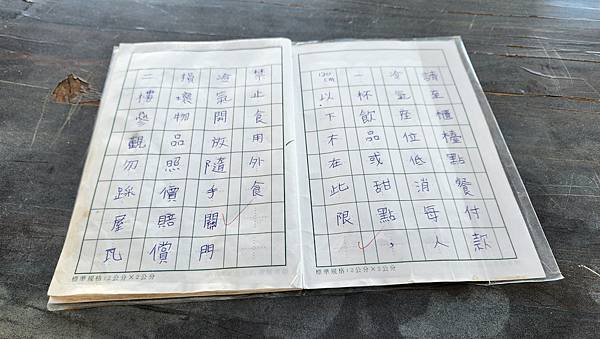 請至櫃檯點餐付款
冷氣座位低消每人
一杯飲品或甜點，
120cm以下不在此限
標準規格12公分×2公分
禁止食用外食
冷氣開放隨手關門
損壞物品照價賠償
二樓參觀勿踩屋瓦
標準規格12公分×2公分